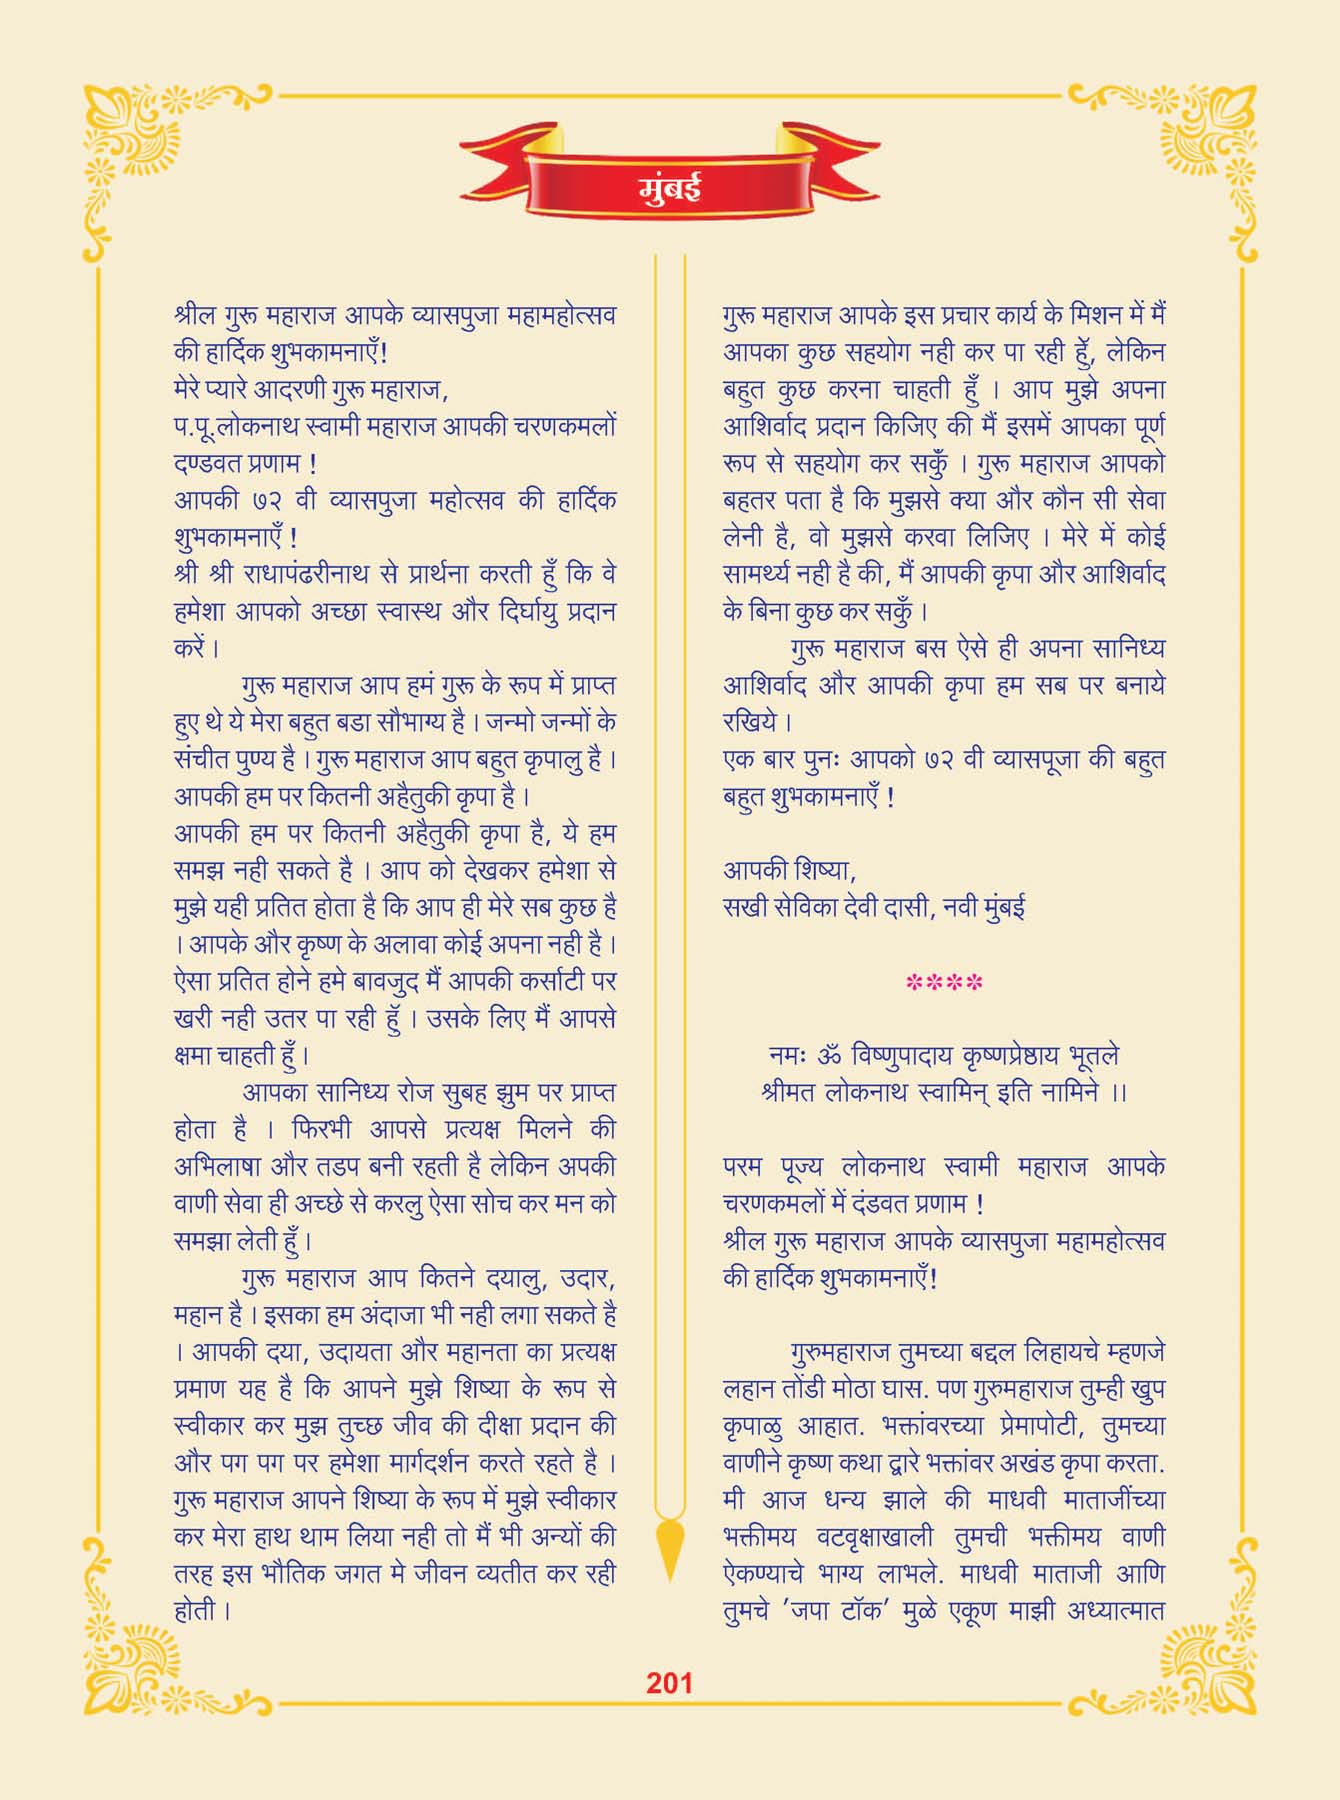 मुंबई
श्रील गुरू महाराज आपके व्यासपुजा महामहोत्सव
की हार्दिक शुभकामनाएँ!
मेरे प्यारे आदरणी गुरू महाराज,
प.पू.लोकनाथ स्वामी महाराज आपकी चरणकमलों
दण्डवत प्रणाम !
आपकी ७२ वी व्यासपुजा महोत्सव की हार्दिक
शुभकामनाएँ !
श्री श्री राधापंढरीनाथ से प्रार्थना करती हुँ कि वे
हमेशा आपको अच्छा स्वास्थ और दिर्घायु प्रदान
करें ।
गुरू महाराज आप हमं गुरू के रूप में प्राप्त
हुए थे ये मेरा बहुत बडा सौभाग्य है । जन्मो जन्मों के
संचीत पुण्य है । गुरू महाराज आप बहुत कृपालु है ।
आपकी हम पर कितनी अहैतुकी कृपा है ।
आपकी हम पर कितनी अहैतुकी कृपा है, ये हम
समझ नही सकते है । आप को देखकर हमेशा से
मुझे यही प्रतित होता है कि आप ही मेरे सब कुछ है
। आपके और कृष्ण के अलावा कोई अपना नही है ।
ऐसा प्रतित होने हमे बावजुद मैं आपकी कर्साटी पर
खरी नही उतर पा रही हुॅ । उसके लिए मैं आपसे
क्षमा चाहती हुँ ।
आपका सानिध्य रोज सुबह झुम पर प्राप्त
होता है । फिरभी आपसे प्रत्यक्ष मिलने की
अभिलाषा और तडप बनी रहती है लेकिन अपकी
वाणी सेवा ही अच्छे से करलु ऐसा सोच कर मन को
समझा लेती हुँ ।
गुरू महाराज आप कितने दयालु, उदार,
महान है । इसका हम अंदाजा भी नही लगा सकते है
। आपकी दया, उदायता और महानता का प्रत्यक्ष
प्रमाण यह है कि आपने मुझे शिष्या के रूप से
स्वीकार कर मुझ तुच्छ जीव की दीक्षा प्रदान की
और पग पग पर हमेशा मार्गदर्शन करते रहते है ।
गुरू महाराज आपने शिष्या के रूप में मुझे स्वीकार
कर मेरा हाथ थाम लिया नही तो मैं भी अन्यों की
तरह इस भौतिक जगत मे जीवन व्यतीत कर रही
होती ।
गुरू महाराज आपके इस प्रचार कार्य के मिशन में मैं
आपका कुछ सहयोग नही कर पा रही हुॅं, लेकिन
बहुत कुछ करना चाहती हुँ । आप मुझे अपना
आशिर्वाद प्रदान किजिए की मैं इसमें आपका पूर्ण
रूप से सहयोग कर सकुँ । गुरू महाराज आपको
बहतर पता है कि मुझसे क्या और कौन सी सेवा
लेनी है, वो मुझसे करवा लिजिए । मेरे में कोई
सामर्थ्य नही है की, मैं आपकी कृपा और आशिर्वाद
के बिना कुछ कर सकुँ ।
गुरू महाराज बस ऐसे ही अपना सानिध्य
आशिर्वाद और आपकी कृपा हम सब पर बनाये
रखिये ।
एक बार पुनः आपको ७२ वी व्यासपूजा की बहुत
बहुत शुभकामनाएँ !
आपकी शिष्या,
सखी सेविका देवी दासी, नवी मुंबई
****
नमः ॐ विष्णुपादाय कृष्णप्रेष्ठाय भूतले
श्रीमत लोकनाथ स्वामिन् इति नामिने ।।
परम पूज्य लोकनाथ स्वामी महाराज आपके
चरणकमलों में दंडवत प्रणाम !
श्रील गुरू महाराज आपके व्यासपुजा महामहोत्सव
की हार्दिक शुभकामनाएँ!
गुरुमहाराज तुमच्या बद्दल लिहायचे म्हणजे
लहान तोंडी मोठा घास. पण गुरुमहाराज तुम्ही खुप
कृपाळु आहात. भक्तांवरच्या प्रेमापोटी, तुमच्या
वाणीने कृष्ण कथा द्वारे भक्तांवर अखंड कृपा करता.
मी आज धन्य झाले की माधवी माताजींच्या
भक्तीमय वटवृक्षाखाली तुमची भक्तीमय वाणी
ऐकण्याचे भाग्य लाभले. माधवी माताजी आणि
तुमचे 'जपा टॉक' मुळे एकूण माझी अध्यात्मात
201